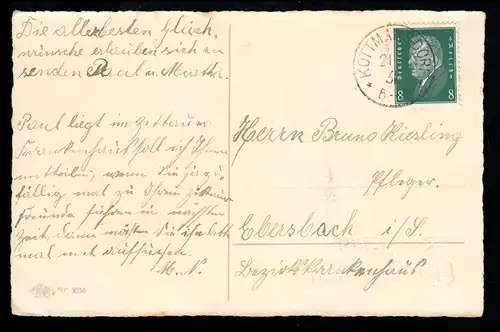 Die allerbesten Glück,
wünsche erlauben sich zu
senden Paul u. Martha.
Paul liegt im Zittauer
Krankenhaus soll ich Ihnen
mitteilen, wenn Sie ja zu-
fällig mal zu Ihren Zittauer
Freunde führen in nächster
Zeit, dann möchten Sie ihn bitte
mal mit aufsuchen.
M. N.
KOTTMARSDORF
Deutsches Reich
8 8
Herrn Bruno Kiesling
Pfleger.
Ebersbach i/S.
Bezirkskrankenhaus